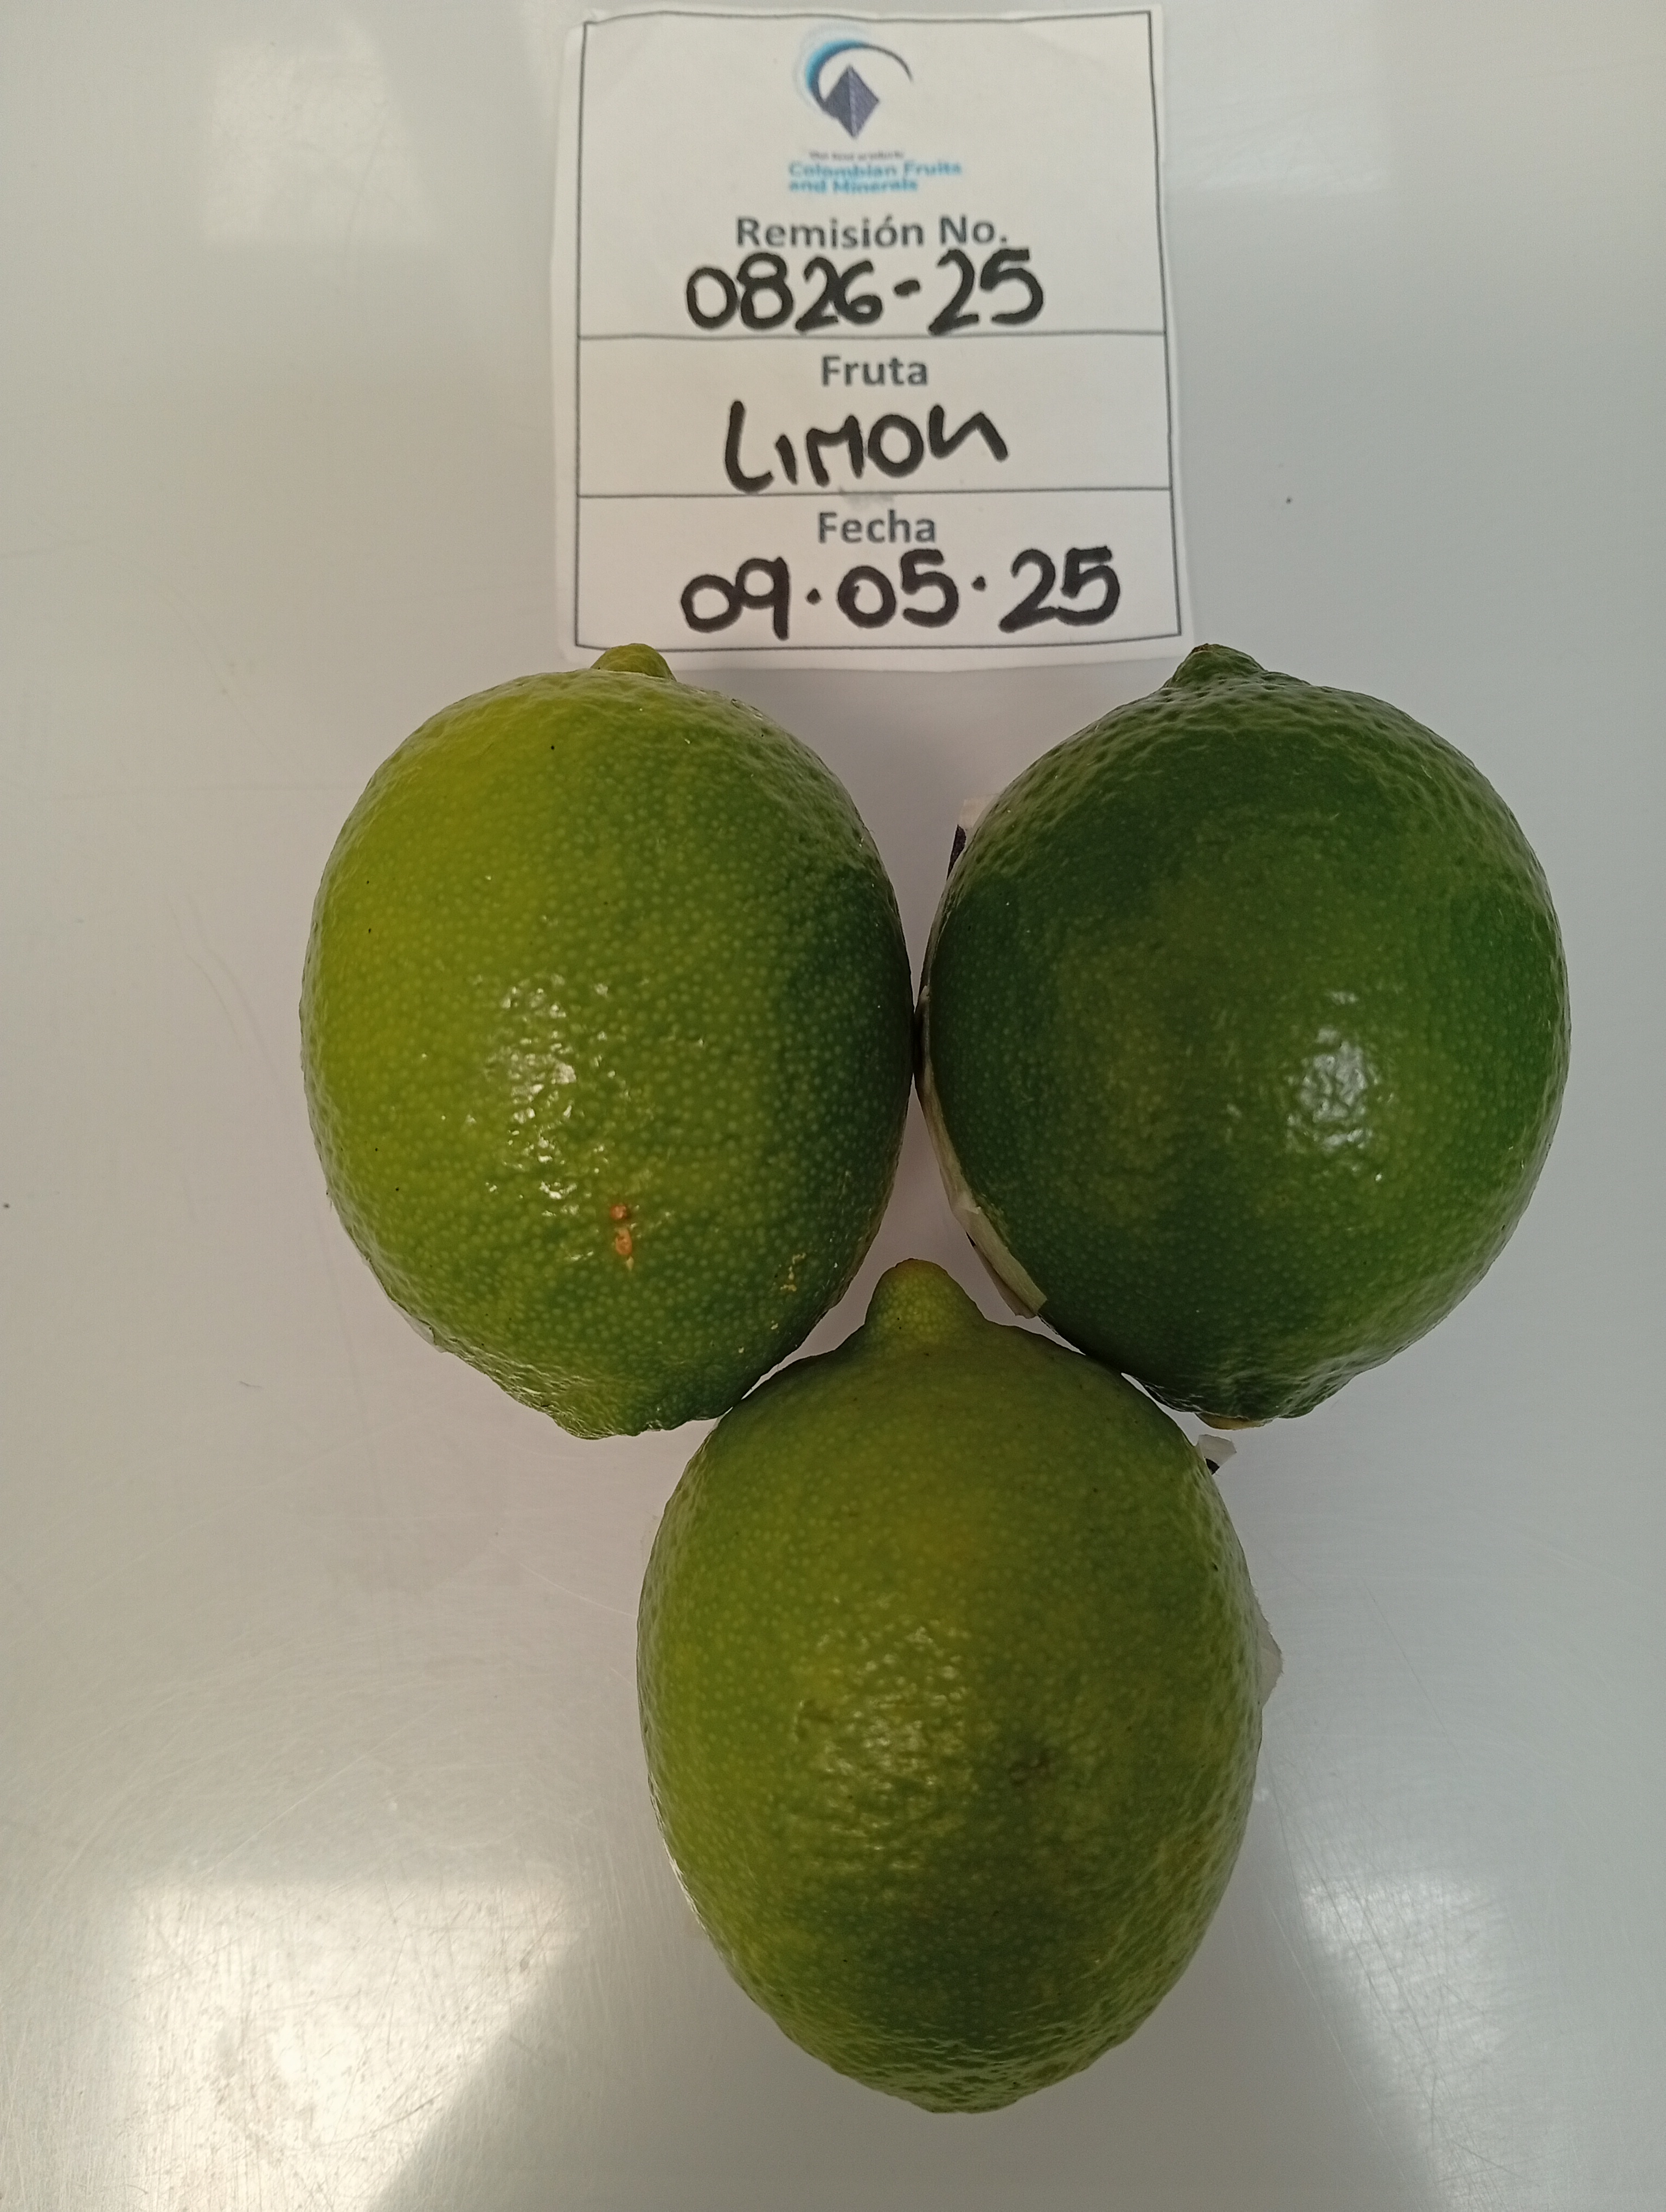 Colombian Fruits
and Minerals
Remisión No.
0826-25
Fruta
LIMON
Fecha
09.05.25